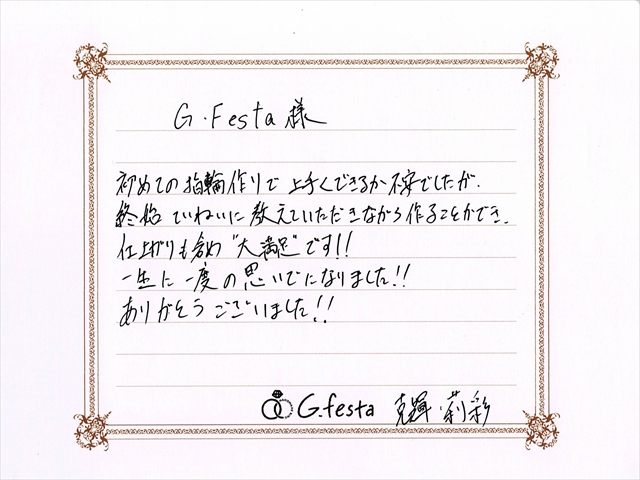 G.Festa 様
初めての指輪作りで上手くできるか不安でしたが、
終始ていねいに教えていただきながら作ることができ、
仕上がりも含め"大満足"です!!
一生に一度の思いでになりました!!
ありがとうございました!!
G.festa 克輝・莉彩